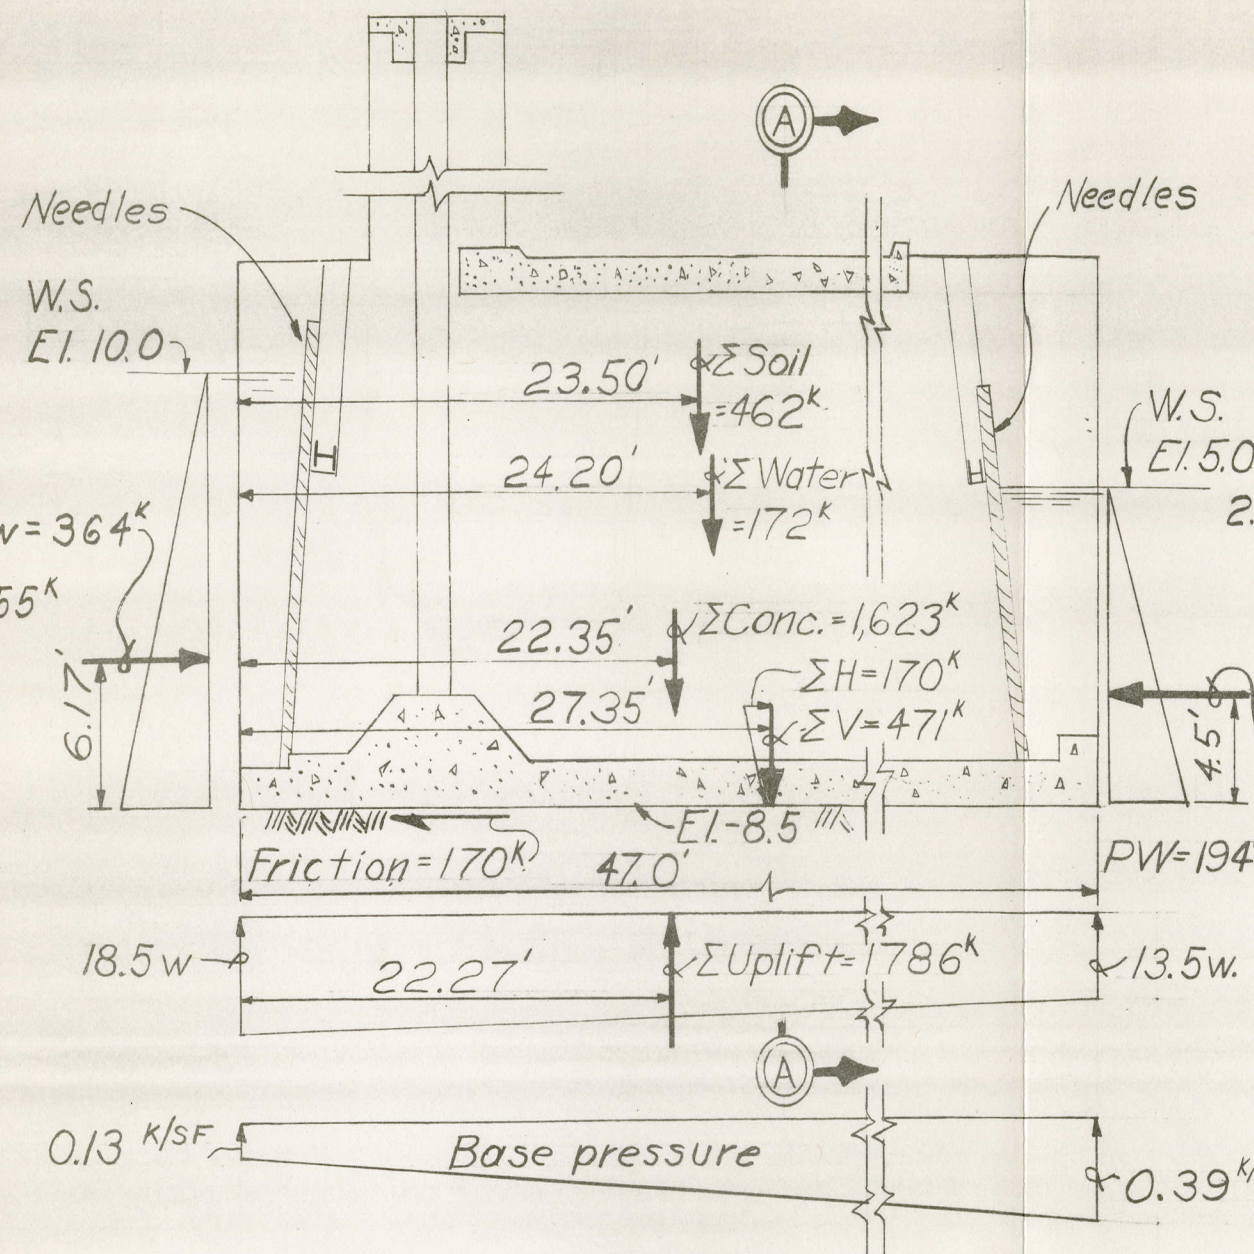 A
Needles
Needles
W.S.
El. 10.0
23.50'
Σ Soil
=462ᴷ
W.S.
El. 5.0
24.20'
Σ Water
=172ᴷ
2.
w = 364ᴷ
55ᴷ
22.35'
ΣConc.=1,623ᴷ
ΣH=170ᴷ
27.35'
ΣV=471ᴷ
6.17'
4.5'
El.-8.5
Friction=170ᴷ
47.0'
PW=194
18.5w
22.27'
ΣUplift=1786ᴷ
13.5w.
A
0.13 ᴷ/SF
Base pressure
0.39 ᴷ/